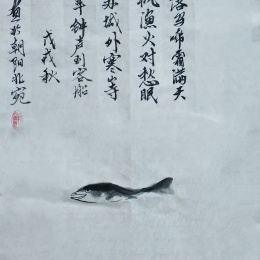 落乌啼霜满天
枫渔火对愁眠
苏城外寒山寺
半钟声到客船
戊戌秋
于朝阳北苑